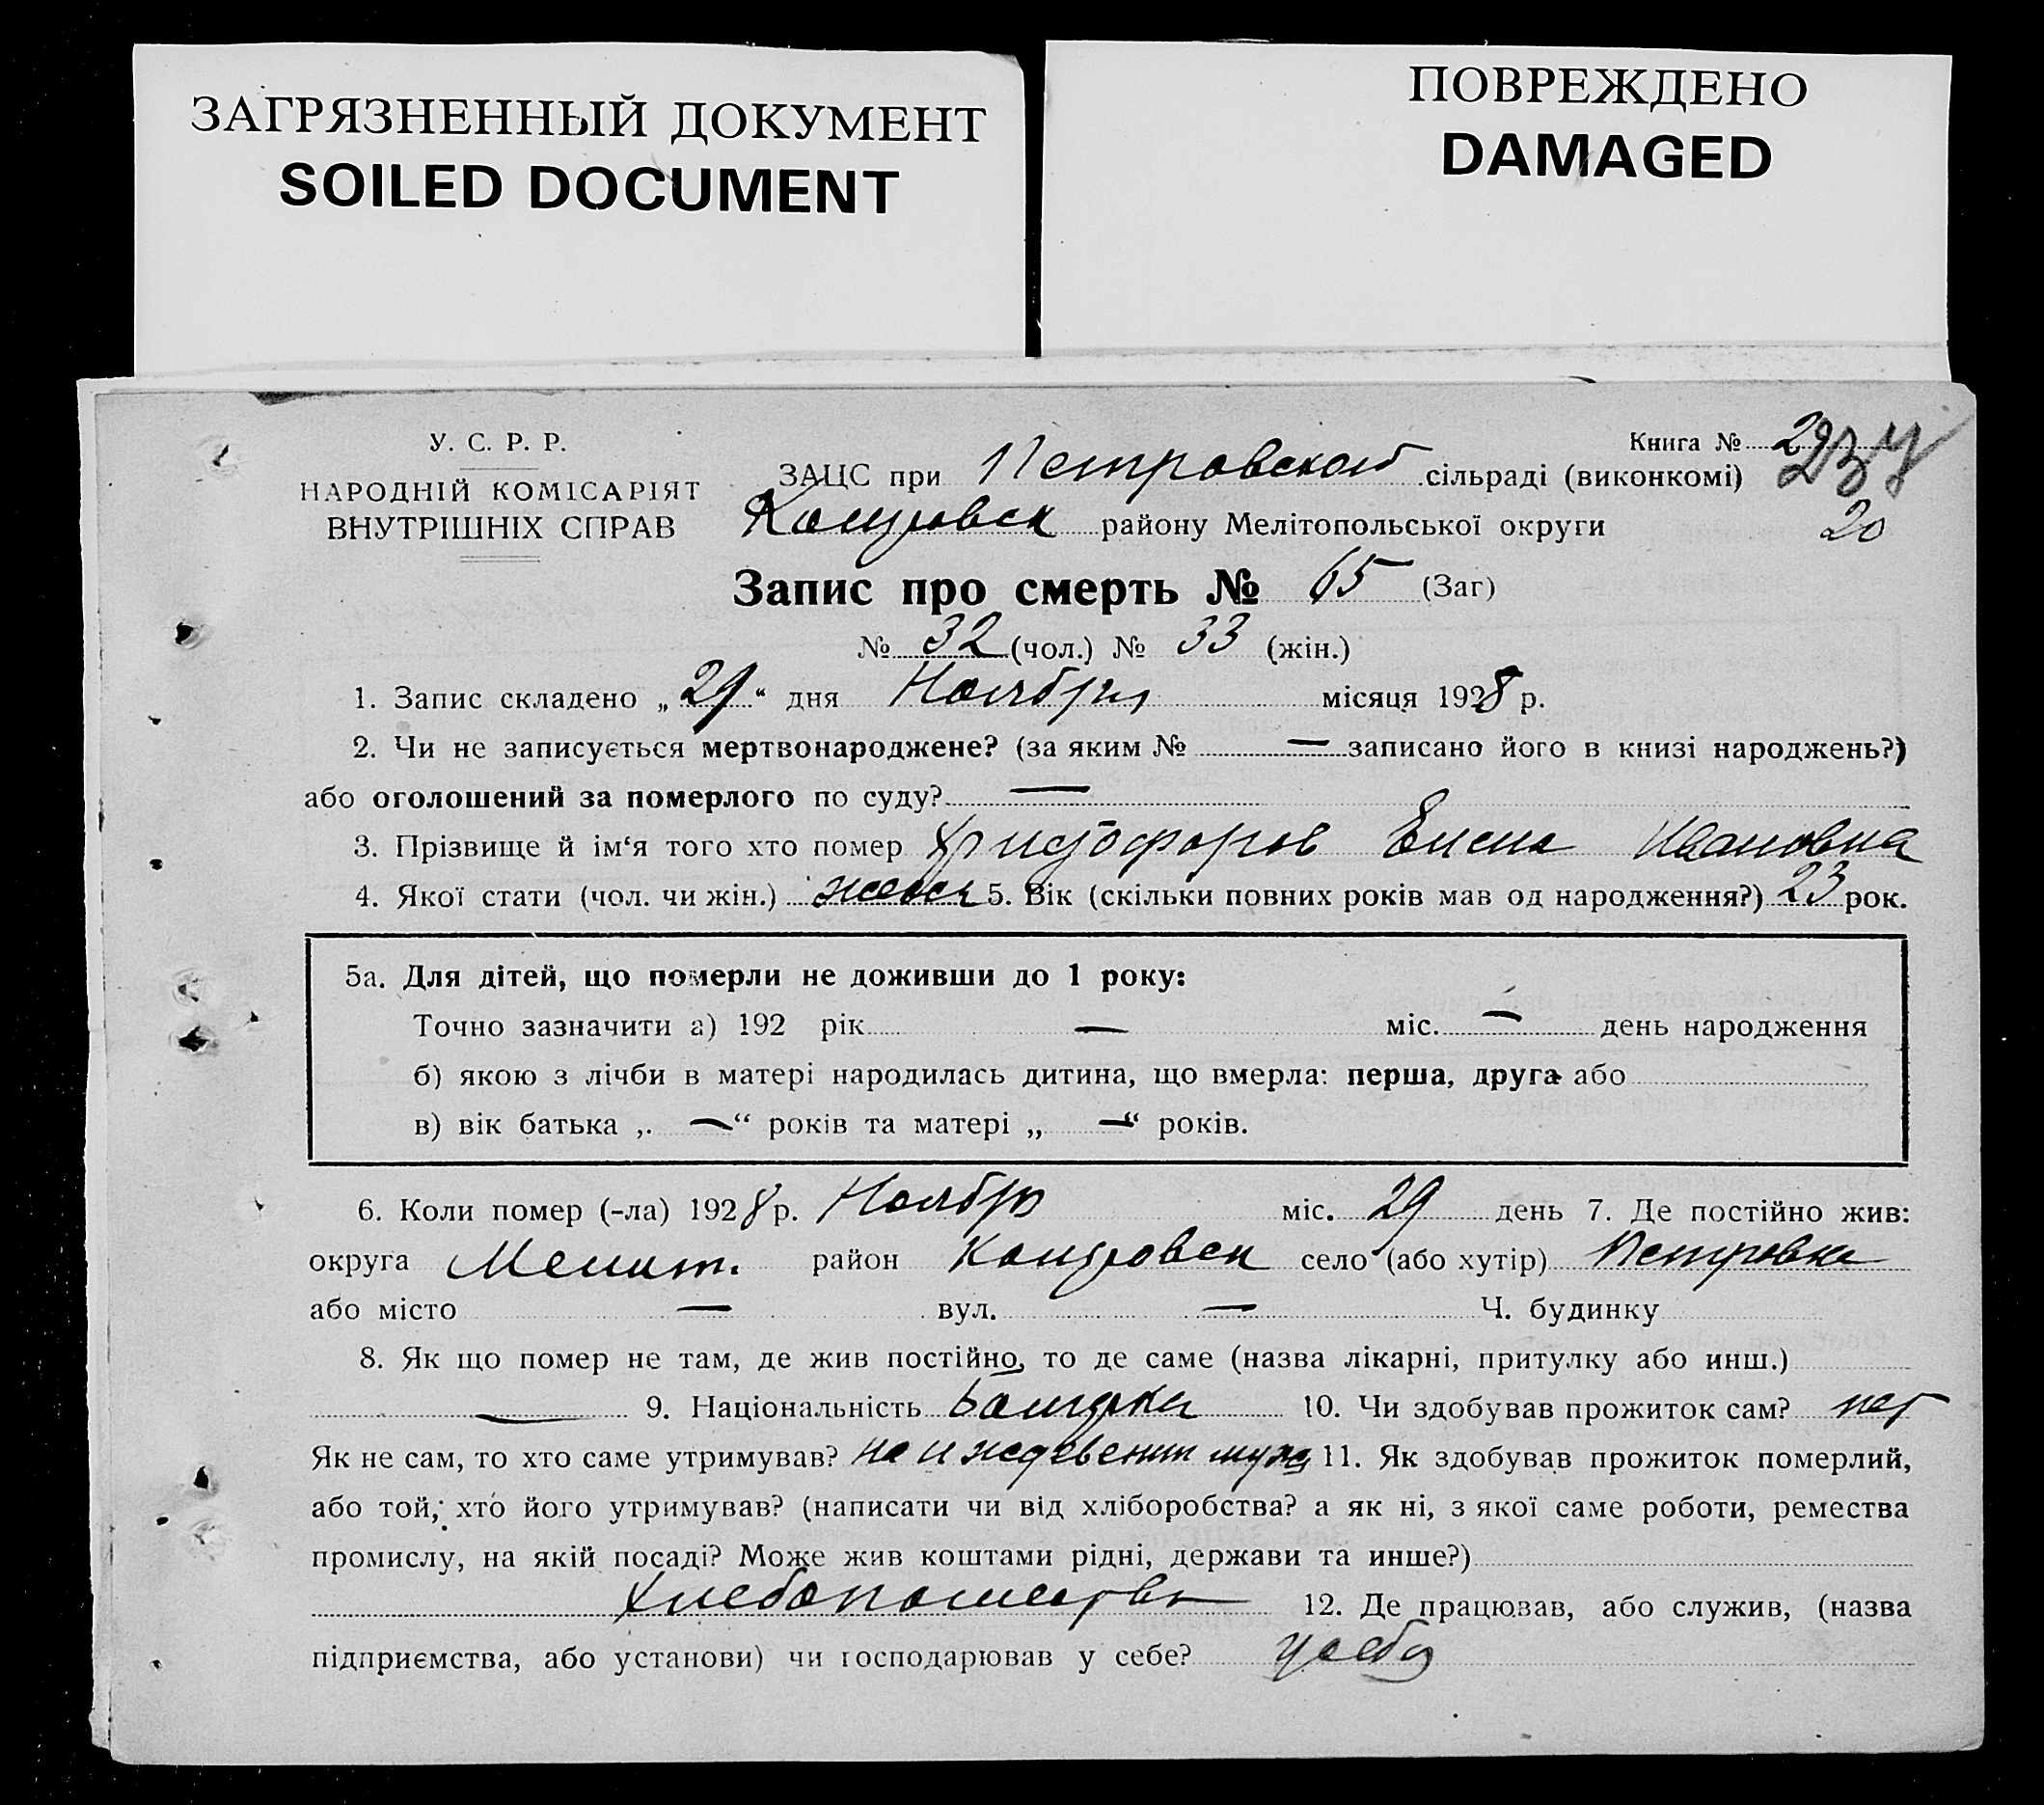 ЗАГРЯЗНЕННЫЙ ДОКУМЕНТ
SOILED DOCUMENT
ПОВРЕЖДЕНО
DAMAGED
У. С. Р. Р.
НАРОДНІЙ КОМІСАРІЯТ
ВНУТРІШНІХ СПРАВ
Книга №
ЗАЦС при Петровской сільраді (виконкомі)
району Мелітопольської округи
20
Запис про смерть № 65 (Заг)
№ 32 (чол.) № 33 (жін.)
1. Запис складено „29“ дня Ноября місяця 1928 р.
2. Чи не записується мертвонароджене? (за яким № — записано його в книзі народжень?)
або оголошений за померлого по суду? —
3. Прізвище й ім‘я того хто помер Христофоров Елена Ивановна
4. Якої стати (чол. чи жін.) женск 5. Вік (скільки повних років мав од народження?) 23 рок.
5а. Для дітей, що померли не доживши до 1 року:
Точно зазначити а) 192 рік — міс. — день народження
б) якою з лічби в матері народилась дитина, що вмерла: перша, друга або
в) вік батька „ —“ років та матері „ —“ років.
6. Коли помер (-ла) 1928 р. Ноябрь міс. 29 день 7. Де постійно жив:
округа Мелит. район село (або хутір) Петровка
або місто — вул. — Ч. будинку
8. Як що помер не там, де жив постійно, то де саме (назва лікарні, притулку або инш.)
— 9. Національність Болгарка 10. Чи здобував прожиток сам? нет
Як не сам, то хто саме утримував? на иждевении мужа 11. Як здобував прожиток померлий,
або той, хто його утримував? (написати чи від хліборобства? а як ні, з якої саме роботи, ремества
промислу, на якій посаді? Може жив коштами рідні, держави та инше?)
Хлебопашество 12. Де працював, або служив, (назва
підприємства, або установи) чи господарював у себе? у себя